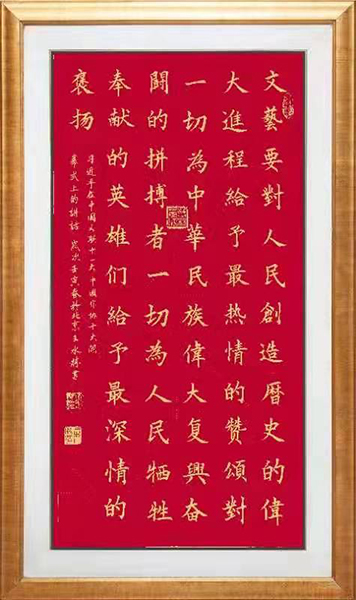 文藝要對人民創造曆史的偉
大進程給予最热情的赞頌對
一切為中華民族偉大复興奋
鬪的拼搏者一切為人民牺牲
奉献的英雄们給予最深情的
褒扬
习近平在中國文联十一大中國作协十大開
幕式上的讲話 岁次壬寅春於北京